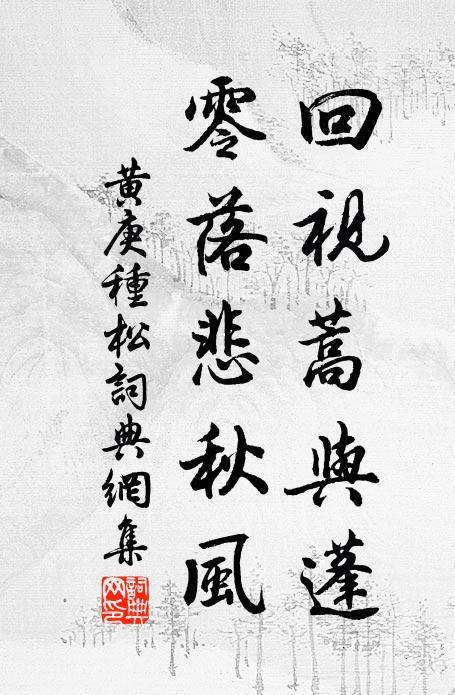 回視蒿與蓬
零落悲秋風
黃庚種松詞典網集
詞典網印